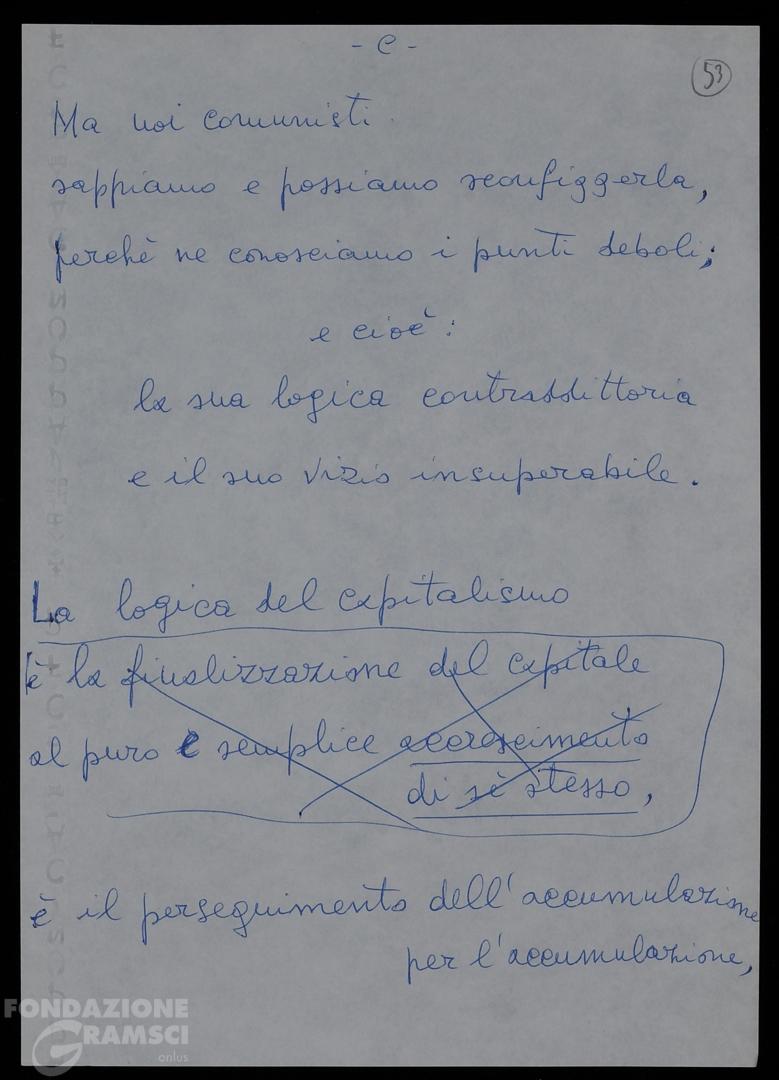 - C -
53
Ma noi comunisti
sappiamo e possiamo sconfiggerla,
perchè ne conosciamo i punti deboli;
e cioè:
la sua logica contraddittoria
e il suo vizio insuperabile.
La logica del capitalismo
è la finalizzazione del capitale
al puro e semplice accrescimento
di sè stesso,
è il perseguimento dell'accumulazione
per l'accumulazione,
FONDAZIONE
GRAMSCI
onlus